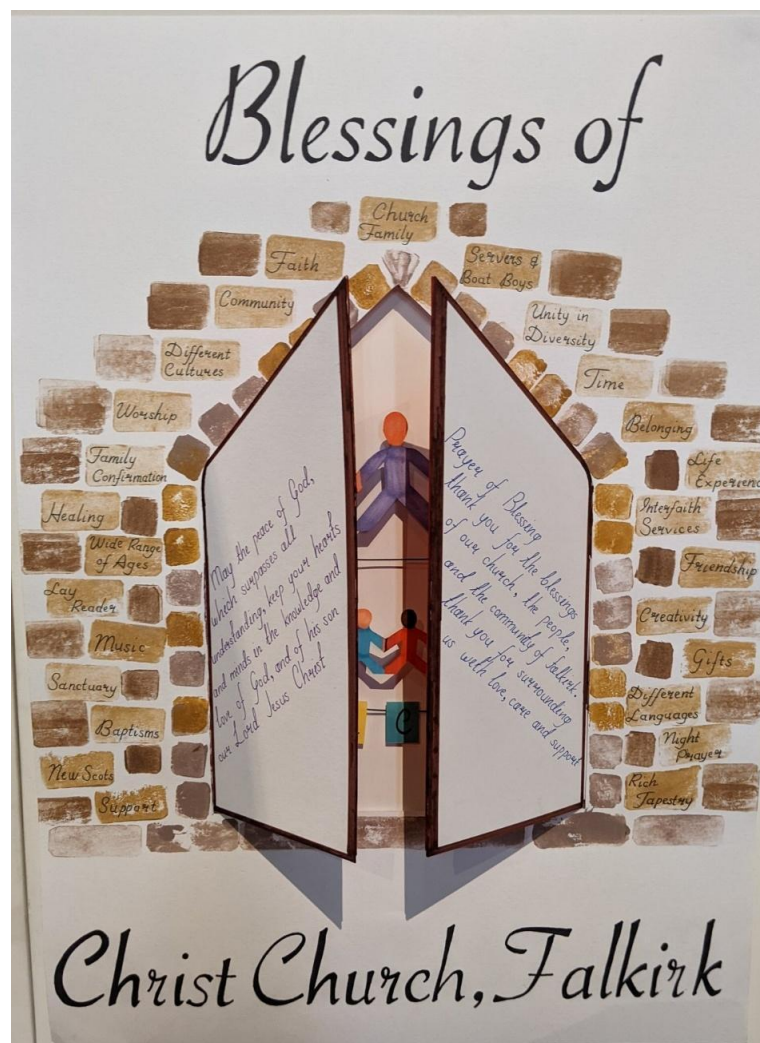 Blessings of
Church
Family
Faith
Servers &
Boat Boys
Community
Unity in
Diversity
Different
Cultures
Time
Worship
Belonging
Family
Confirmation
Life
Experienc
Healing
Interfaith
Services
Wide Range
of Ages
Friendship
Lay
Reader
Creativity
Music
Gifts
Sanctuary
Different
Languages
Baptisms
Night
Prayer
New Scots
Rich
Tapestry
Support
May the peace of God,
which surpasses all
understanding, keep your hearts
and minds in the knowledge and
love of God, and of his son
our Lord Jesus Christ
C
Prayer of Blessing
thank you for the blessings
of our church, the people,
and the community of Falkirk.
thank you for surrounding
us with love, care and support
Christ Church, Falkirk